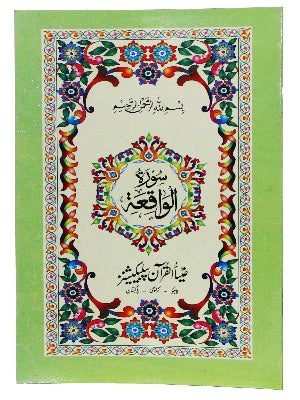 بسم الله الرحمن الرحيم
سورة
الواقعة
ضیاء القرآن پبلیکیشنز
لاہور - کراچی - پاکستان